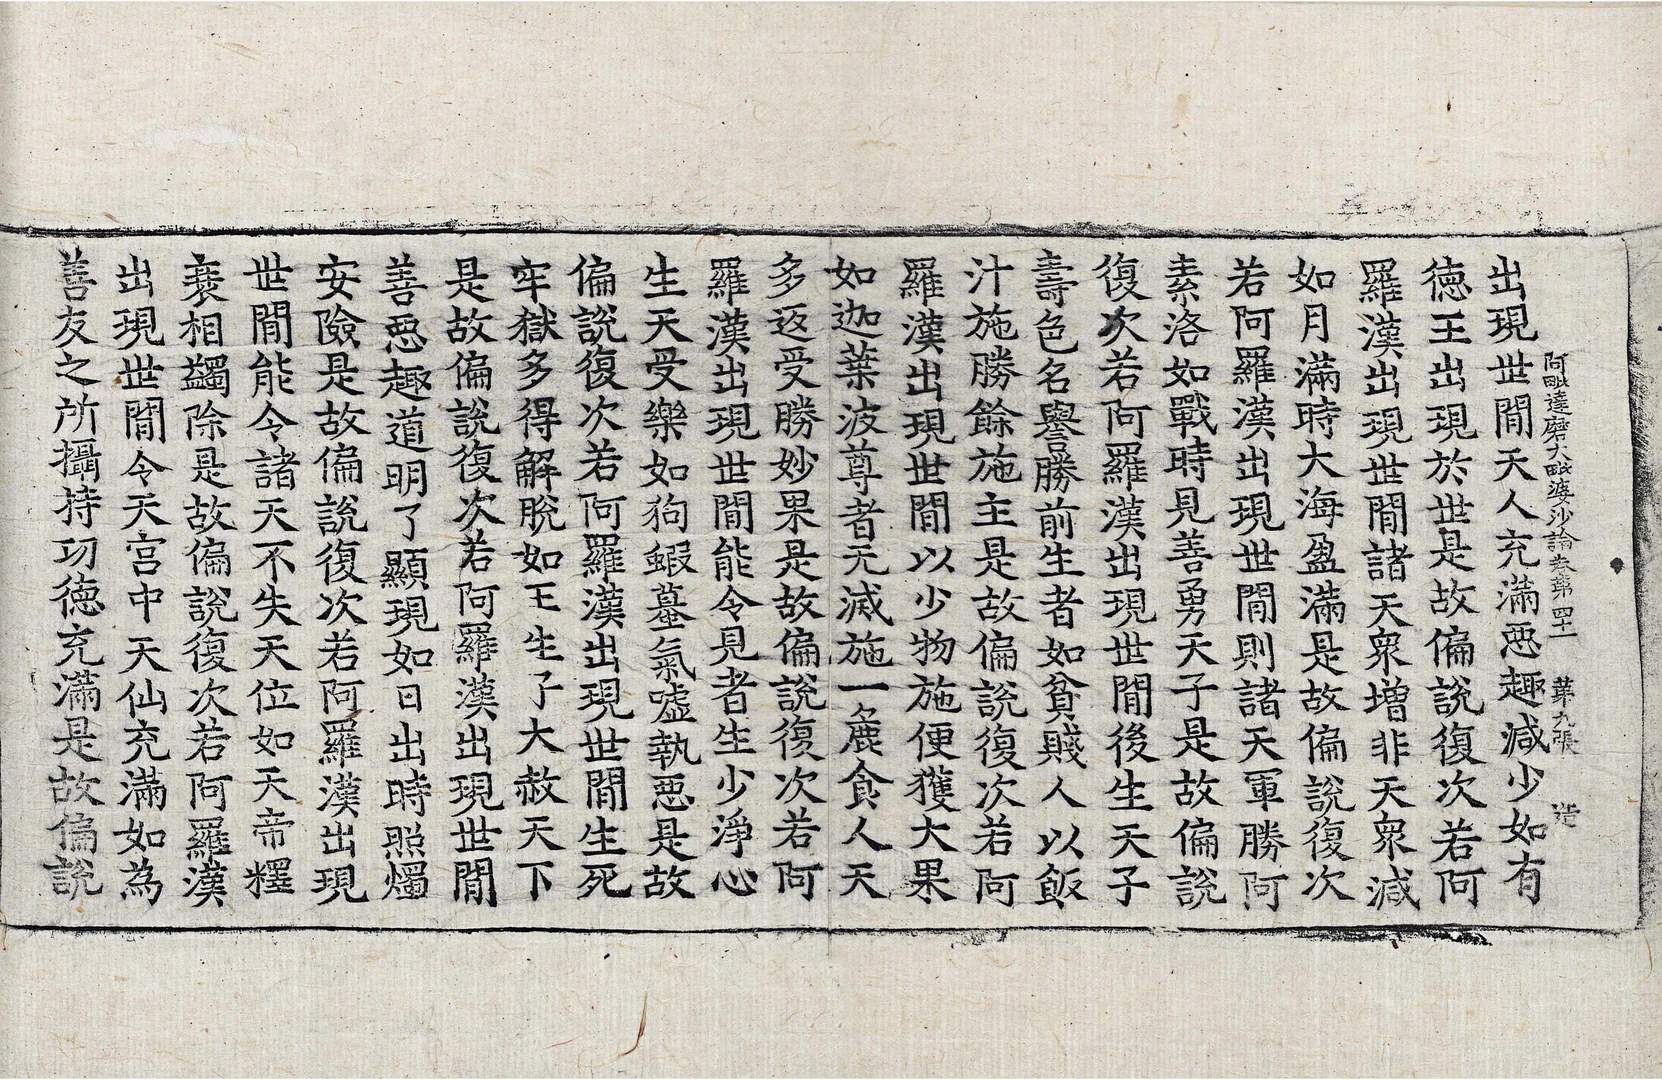 阿毗達磨大毗婆沙論卷第四十一 第九張 造
出現世閒天人充滿惡趣減少如有
德王出現於世是故偏說復次若阿
羅漢出現世閒諸天衆增非天衆減
如月滿時大海盈滿是故偏說復次
若阿羅漢出現世閒則諸天軍勝阿
素洛如戰時見善勇天子是故偏說
復次若阿羅漢出現世閒後生天子
壽色名譽勝前生者如貧賤人以飯
汁施勝餘施主是故偏說復次若阿
羅漢出現世閒以少物施便獲大果
如迦葉波尊者无滅施一麁食人天
多返受勝妙果是故偏說復次若阿
羅漢出現世閒能令見者生少淨心
生天受樂如狗蝦蟇氣噓執惡是故
偏說復次若阿羅漢出現世閒生死
牢獄多得解脫如王生子大赦天下
是故偏說復次若阿羅漢出現世閒
善惡趣道明了顯現如日出時照燭
安險是故偏說復次若阿羅漢出現
世閒能令諸天不失天位如天帝釋
衰相蠲除是故偏說復次若阿羅漢
出現世閒令天宮中天仙充滿如為
善友之所攝持功德充滿是故偏說